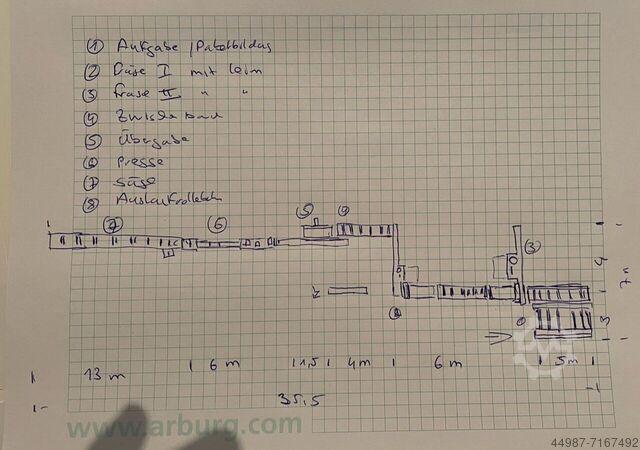 ① Aufgabe / Paketbildung
② Fräse I mit Leim
③ Fräse II " "
④ Zwischenband
⑤ Übergabe
⑥ Presse
⑦ Säge
⑧ Auslaufrollenbahn
⑦ ⑥ ⑤ ④ ③
②
4
7 m
3
13 m 6 m 1,5 4m 6 m 5m
35,5
www.arburg.com
44987-7167492